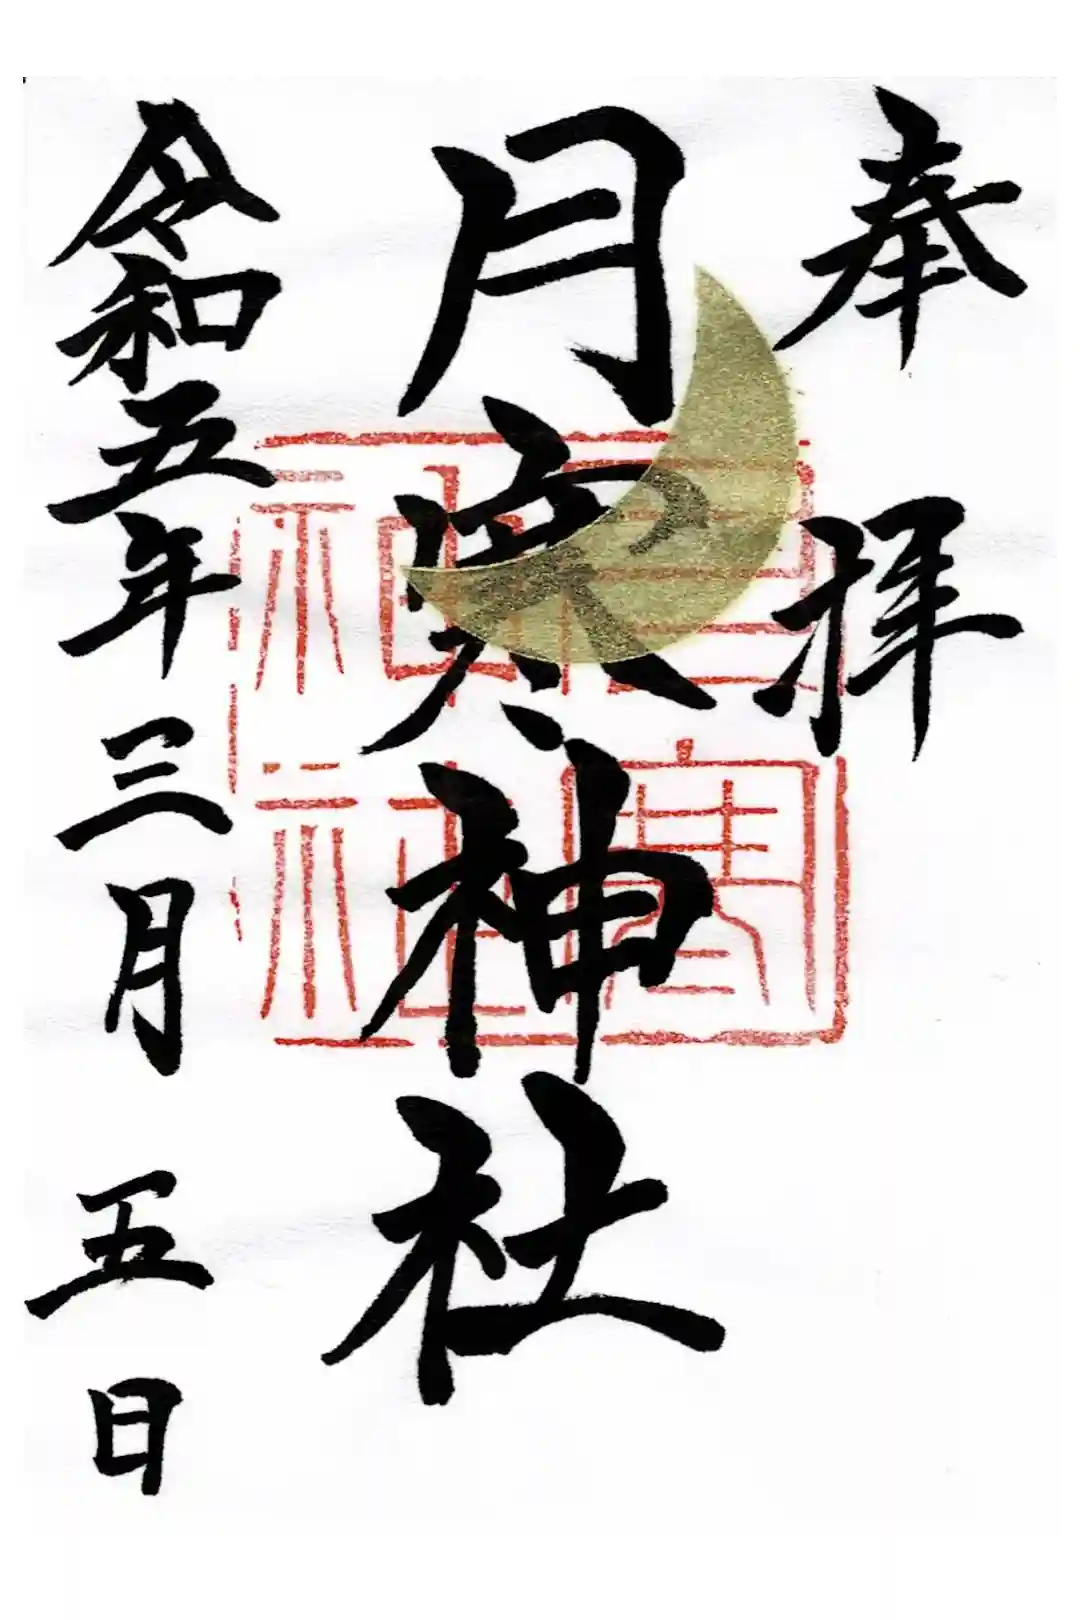 奉拝
月寒神社
月寒神社
令和五年三月五日